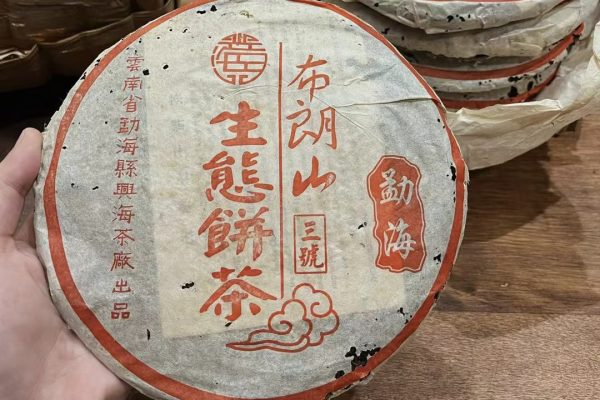 布朗山
三號
生態餅茶
勐海
雲南省勐海縣興海茶廠出品